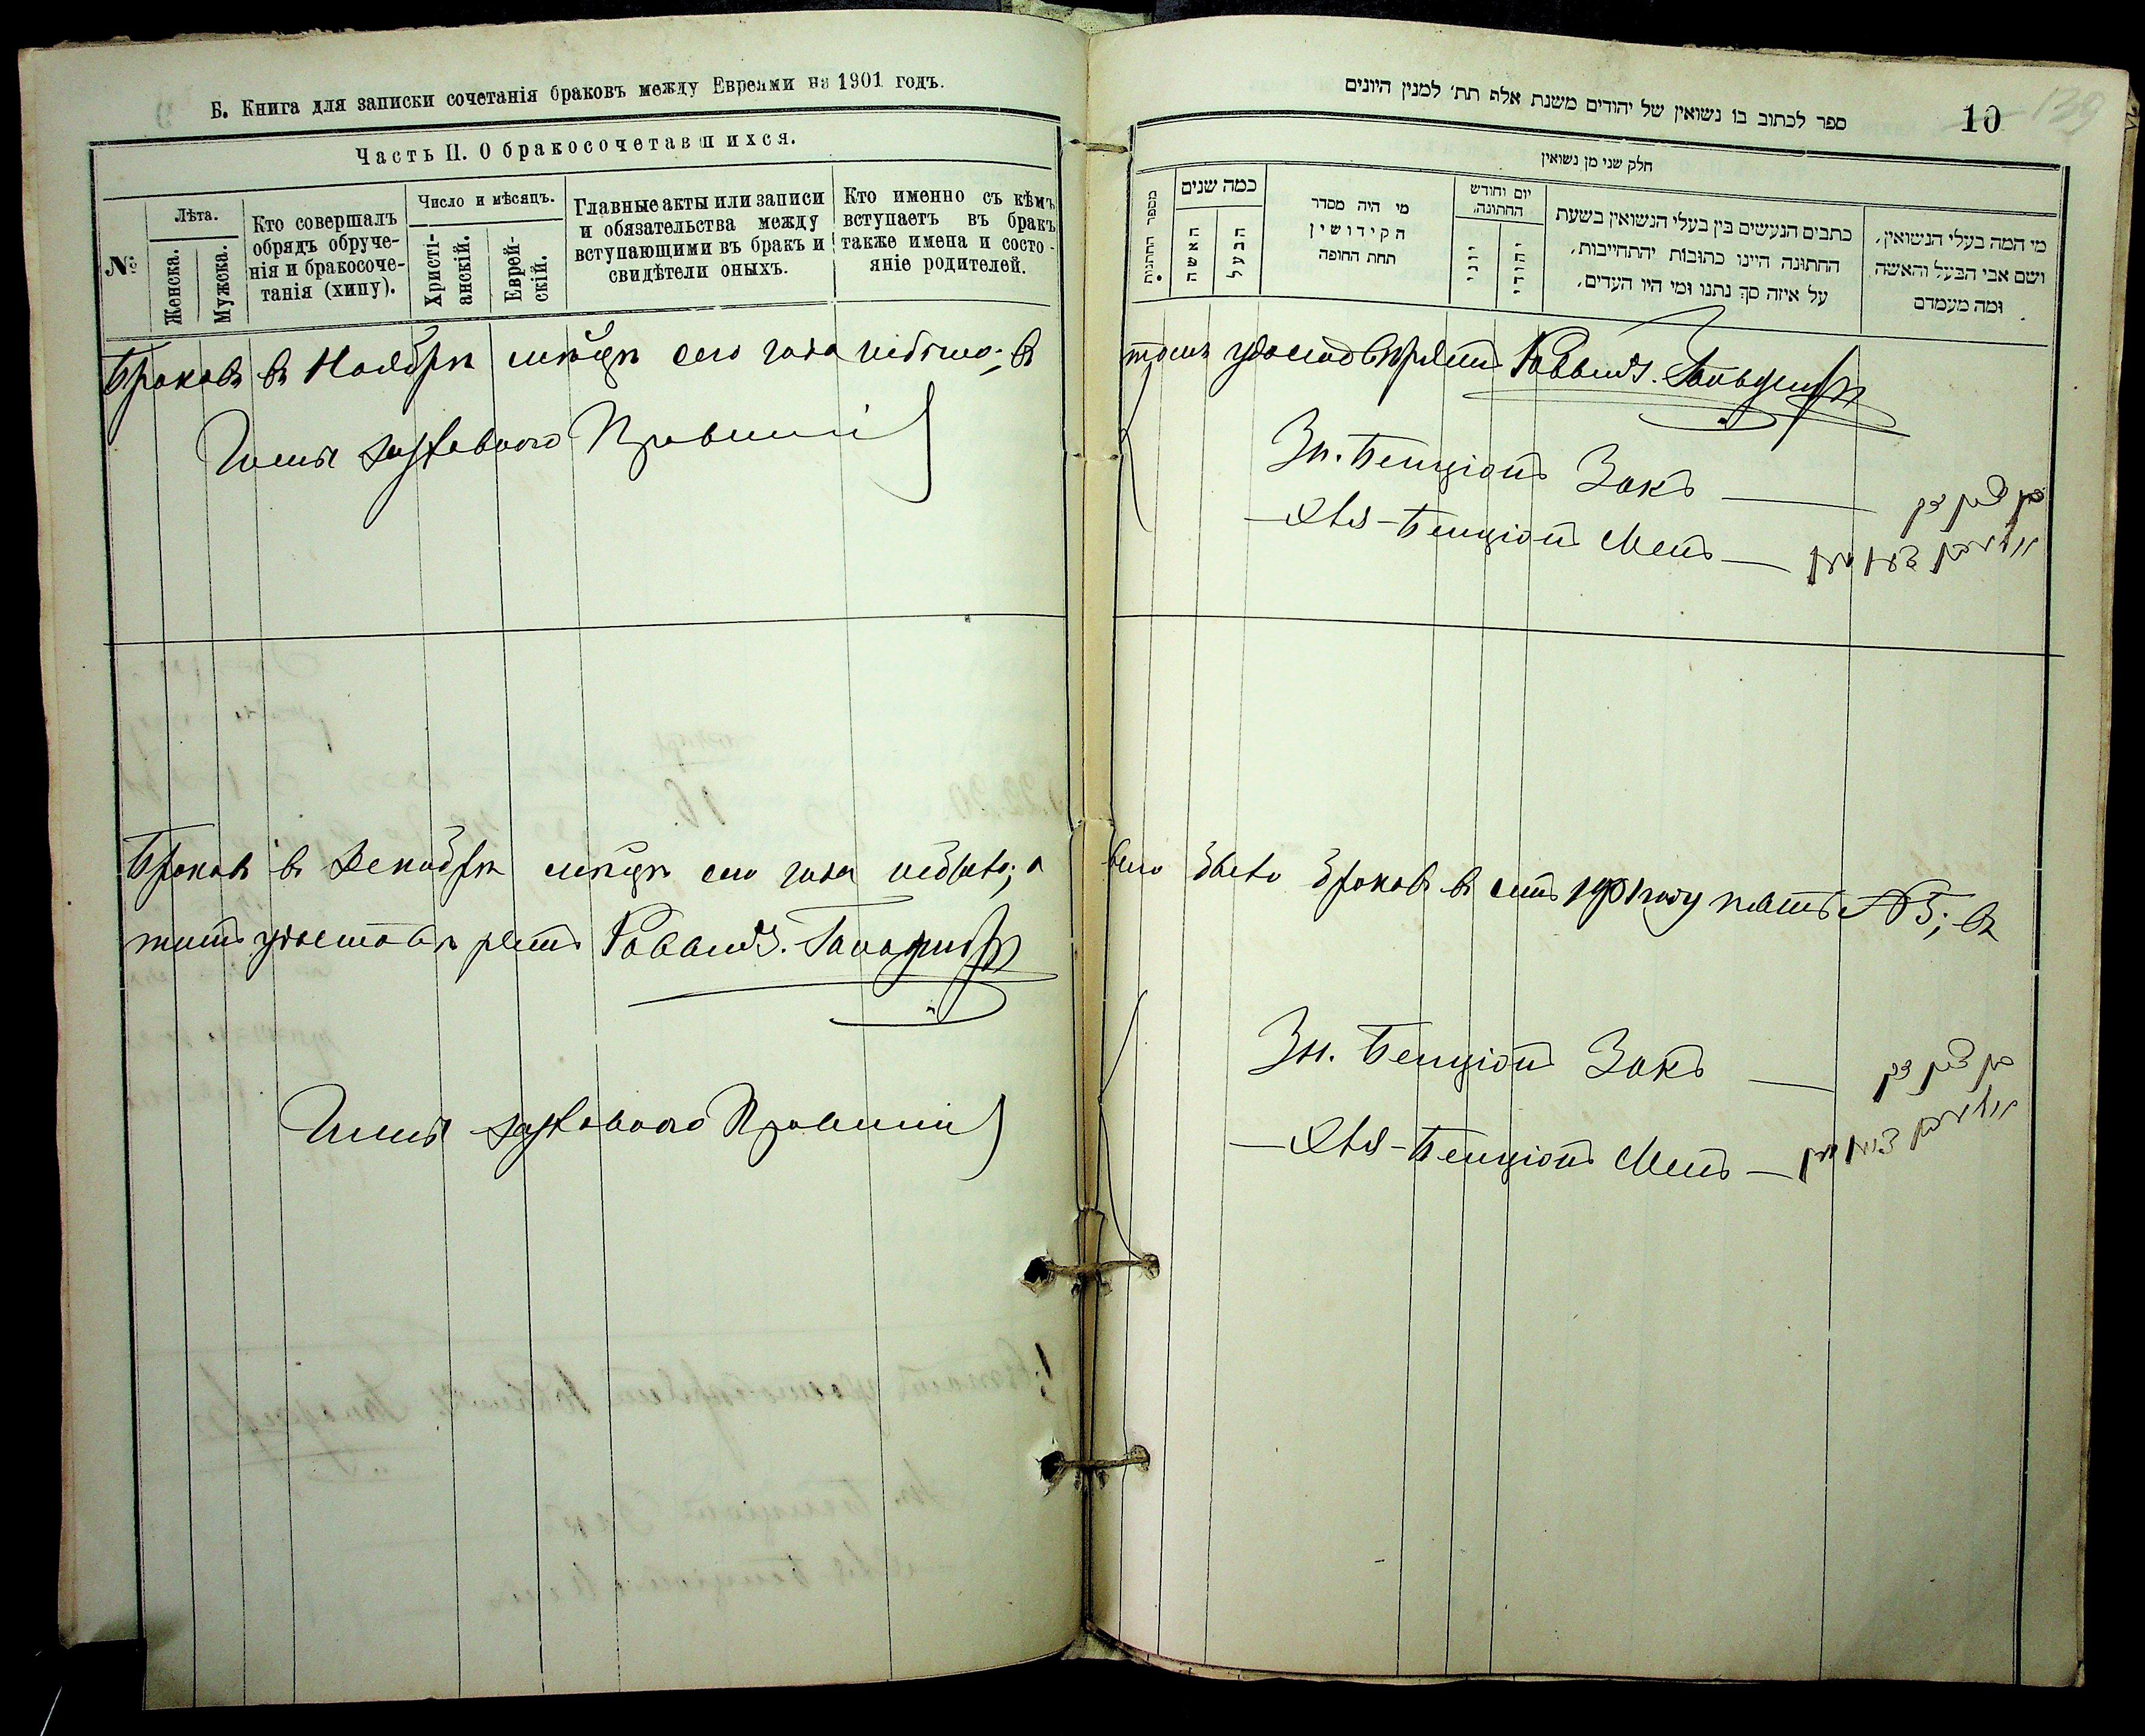 Б. Книга для записки сочетанія браковъ между Евреями на 1901 годъ.
Часть II. О бракосочетавшихся.
№
Лѣта.
Женска.
Мужска.
Кто совершалъ
обрядъ обруче-
нія и бракосоче-
танія (хипу).
Число и мѣсяцъ.
Христі-
анскій.
Еврей-
скій.
Главные акты или записи
и обязательства между
вступающими въ бракъ и
свидѣтели оныхъ.
Кто именно съ кѣмъ
вступаетъ въ бракъ
также имена и состо-
яніе родителей.
Браковъ въ Ноябрѣ мѣсяцѣ сего года небыло; въ
Члены духовнаго Правленія
Браковъ въ Декабрѣ мѣсяцѣ сего года небыло; а
томъ удостовѣряетъ Раввинъ
Члены духовнаго Правленія
ספר לכתוב בו נשואין של יהודים משנת אלף תת׳ למנין היונים
10
139
חלק שני מן נשואין
מספר החתונות
כמה שנים
האשה
הבעל
מי היה מסדר
הקידושין
תחת החופה
יום וחודש
החתונה.
יוני
יהודי
כתבים הנעשים בין בעלי הנשואין בשעת
החתונה היינו כתובות יהתחייבות,
על איזה סך נתנו ומי היו העדים,
מי המה בעלי הנשואין,
ושם אבי הבעל והאשה
ומה מעמדם
томъ удостовѣряетъ Раввинъ
Зн. Бенціонъ Закъ
Бенціонъ Менъ
всего было браковъ въ семъ 1901 году пять № 5; въ
Зн. Бенціонъ Закъ
Бенціонъ Менъ